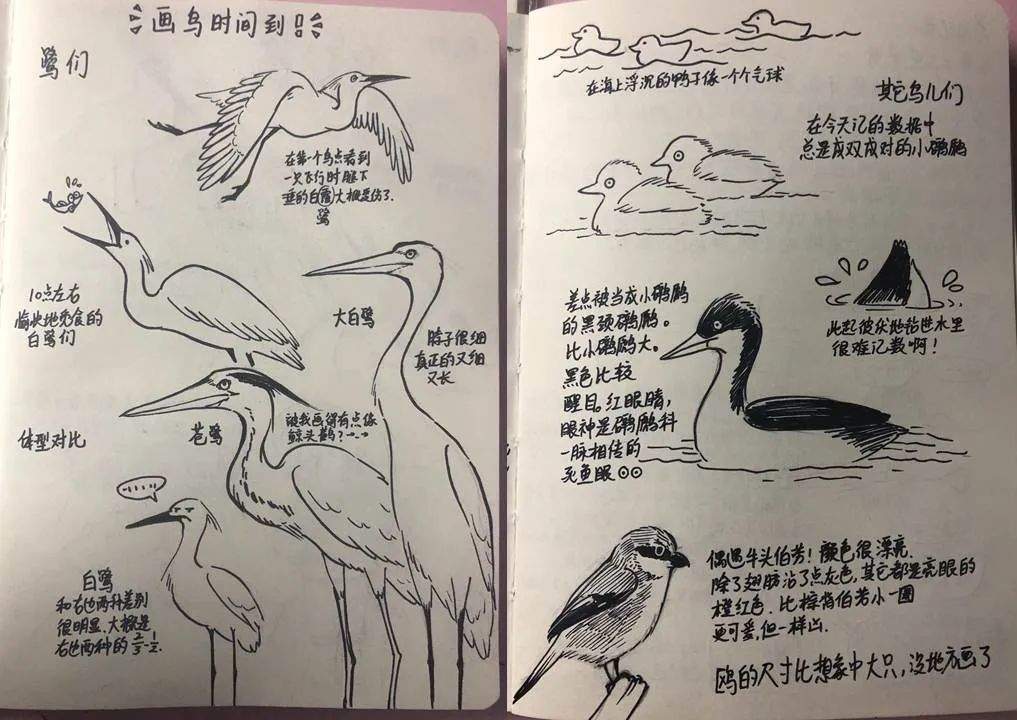 画鸟时间到
鹭们
在第一个鸟点看到
一只飞行时腿下
垂的白鹭大概是伤了.
鹭
10点左右
愉快地觅食的
白鹭们
大白鹭
脖子很细
真正的又细
又长
体型对比
苍鹭
被我画得有点像
鲸头鹳?→_→
白鹭
和右边两种差别
很明显.大概是
右边两种的2/3-1/2.
在海上浮沉的鸭子像一个个气球
其它鸟儿们
在今天记的数据中
总是成双成对的小鸊鷉
差点被当成小鸊鷉
的黑颈鸊鷉。
比小鸊鷉大。
黑色比较
醒目。红眼睛,
眼神是鸊鷉科
一脉相传的
死鱼眼⊙⊙
此起彼伏地钻进水里
很难记数啊!
偶遇牛头伯劳!颜色很漂亮.
除了翅膀沾了点灰色,其它都是亮眼的
橙红色.比棕背伯劳小一圈
更可爱,但一样凶.
鸥的尺寸比想象中大只,没地方画了